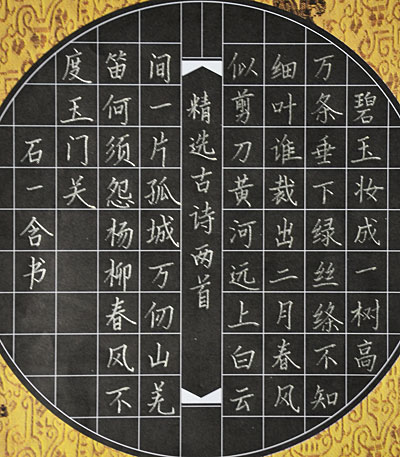 碧玉妆成一树高
万条垂下绿丝绦不知
细叶谁裁出二月春风
似剪刀黄河远上白云
精选古诗两首
间一片孤城万仞山羌
笛何须怨杨柳春风不
度玉门关
石一含书